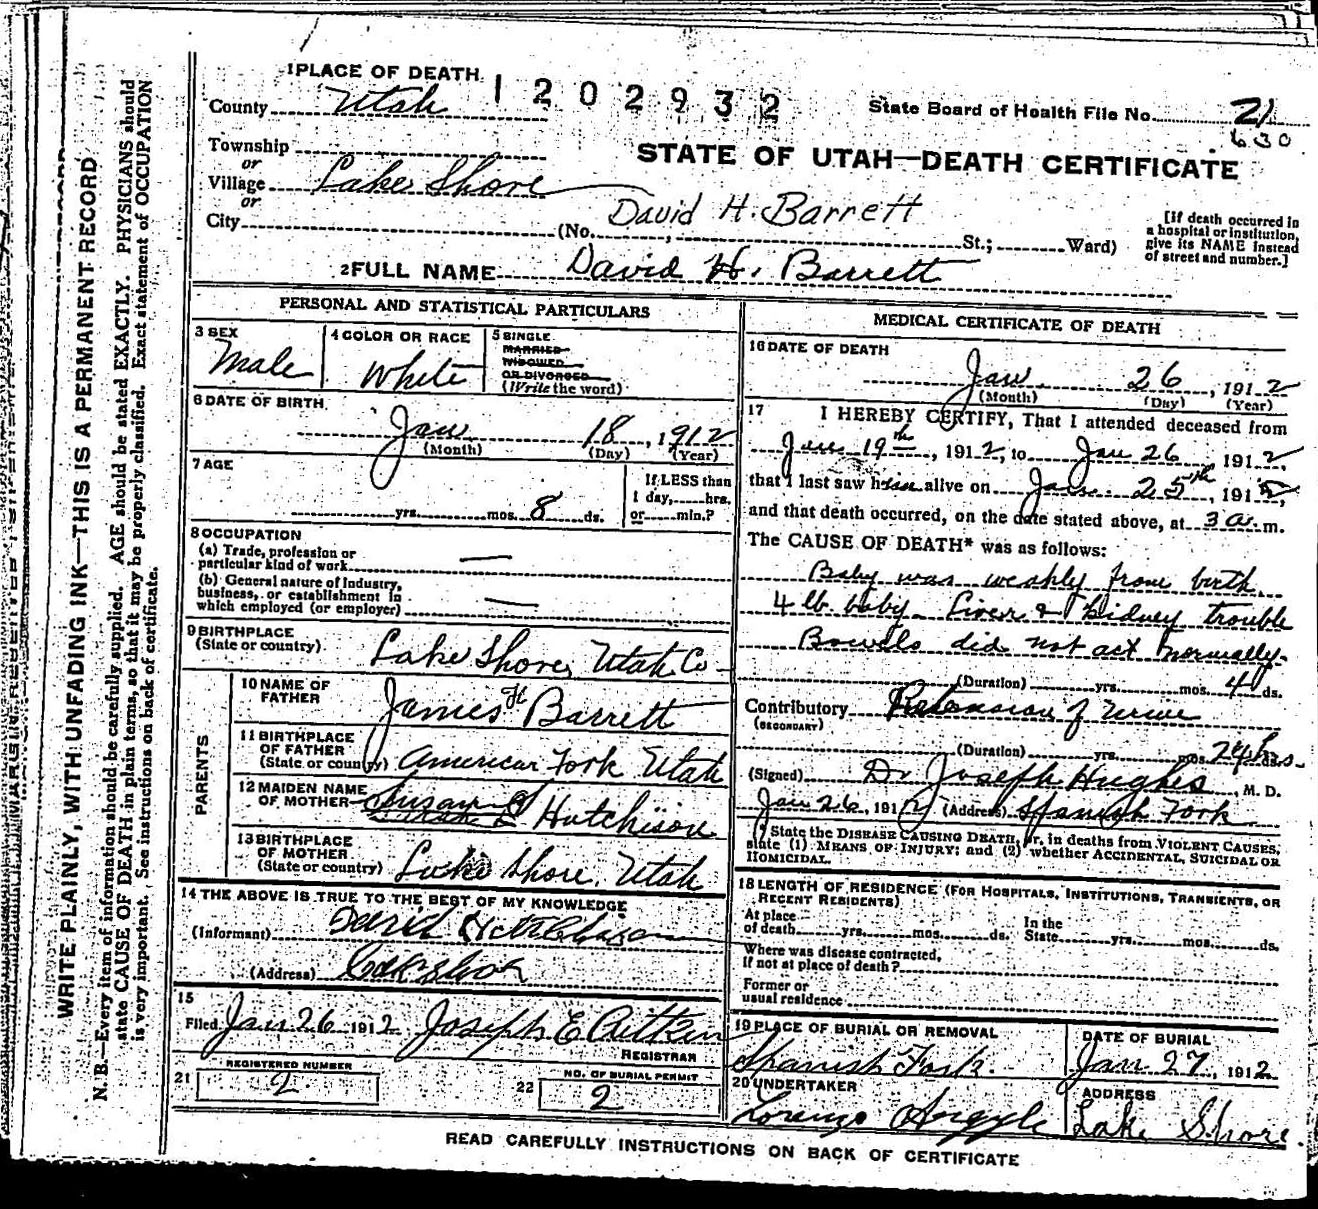 1 PLACE OF DEATH
1 2 0 2 9 3 2
County Utah
State Board of Health File No. 21
630
Township
or
Village Lake Shore
or
City
STATE OF UTAH—DEATH CERTIFICATE
David H. Barrett
(No. , St.; Ward)
[If death occurred in
a hospital or institution,
give its NAME instead
of street and number.]
2 FULL NAME David H. Barrett
PERSONAL AND STATISTICAL PARTICULARS
3 SEX
Male
4 COLOR OR RACE
White
5 SINGLE
MARRIED
WIDOWED
OR DIVORCED
(Write the word)
6 DATE OF BIRTH
Jan 18, 1912
(Month) (Day) (Year)
7 AGE
yrs. mos. 8 ds.
If LESS than
1 day, hrs.
or min.?
8 OCCUPATION
(a) Trade, profession or
particular kind of work —
(b) General nature of Industry,
business, or establishment in
which employed (or employer) —
9 BIRTHPLACE
(State or country) Lake Shore, Utah Co
PARENTS
10 NAME OF
FATHER James H Barrett
11 BIRTHPLACE
OF FATHER
(State or country) American Fork Utah
12 MAIDEN NAME
OF MOTHER Susan Hutchison
13 BIRTHPLACE
OF MOTHER
(State or country) Lake Shore, Utah
14 THE ABOVE IS TRUE TO THE BEST OF MY KNOWLEDGE
(Informant) David
(Address)
15
Filed Jan 26 1912 Joseph E Aitken
REGISTRAR
REGISTERED NUMBER
21 2
NO. OF BURIAL PERMIT
22 2
MEDICAL CERTIFICATE OF DEATH
16 DATE OF DEATH
Jan. 26, 1912
(Month) (Day) (Year)
17 I HEREBY CERTIFY, That I attended deceased from
Jan 19th, 1912, to Jan 26 1912,
that I last saw him alive on Jan. 25th, 1912,
and that death occurred, on the date stated above, at 3 a. m.
The CAUSE OF DEATH* was as follows:
Baby was weakly from birth
4 lb. baby - Liver & Kidney trouble
Bowels did not act normally.
(Duration) yrs. mos. 4 ds.
Contributory Retension of Urine
(SECONDARY)
(Duration) yrs. mos. 24 hrs.
(Signed) Dr Joseph Hughes, M. D.
Jan 26, 1912 (Address) Spanish Fork
* State the DISEASE CAUSING DEATH, or, in deaths from VIOLENT CAUSES,
state (1) MEANS OF INJURY; and (2) whether ACCIDENTAL, SUICIDAL OR
HOMICIDAL.
18 LENGTH OF RESIDENCE (FOR HOSPITALS, INSTITUTIONS, TRANSIENTS, OR
RECENT RESIDENTS)
At place
of death yrs. mos. ds.
In the
State yrs. mos. ds.
Where was disease contracted,
if not at place of death?
Former or
usual residence
19 PLACE OF BURIAL OR REMOVAL
Spanish Fork.
DATE OF BURIAL
Jan 27, 1912
20 UNDERTAKER
Lorenzo Argyle
ADDRESS
Lake Shore.
READ CAREFULLY INSTRUCTIONS ON BACK OF CERTIFICATE
WRITE PLAINLY, WITH UNFADING INK—THIS IS A PERMANENT RECORD
N. B.—Every item of information should be carefully supplied. AGE should be stated EXACTLY. PHYSICIANS should
state CAUSE OF DEATH in plain terms, so that it may be properly classified. Exact statement of OCCUPATION
is very important. See instructions on back of certificate.